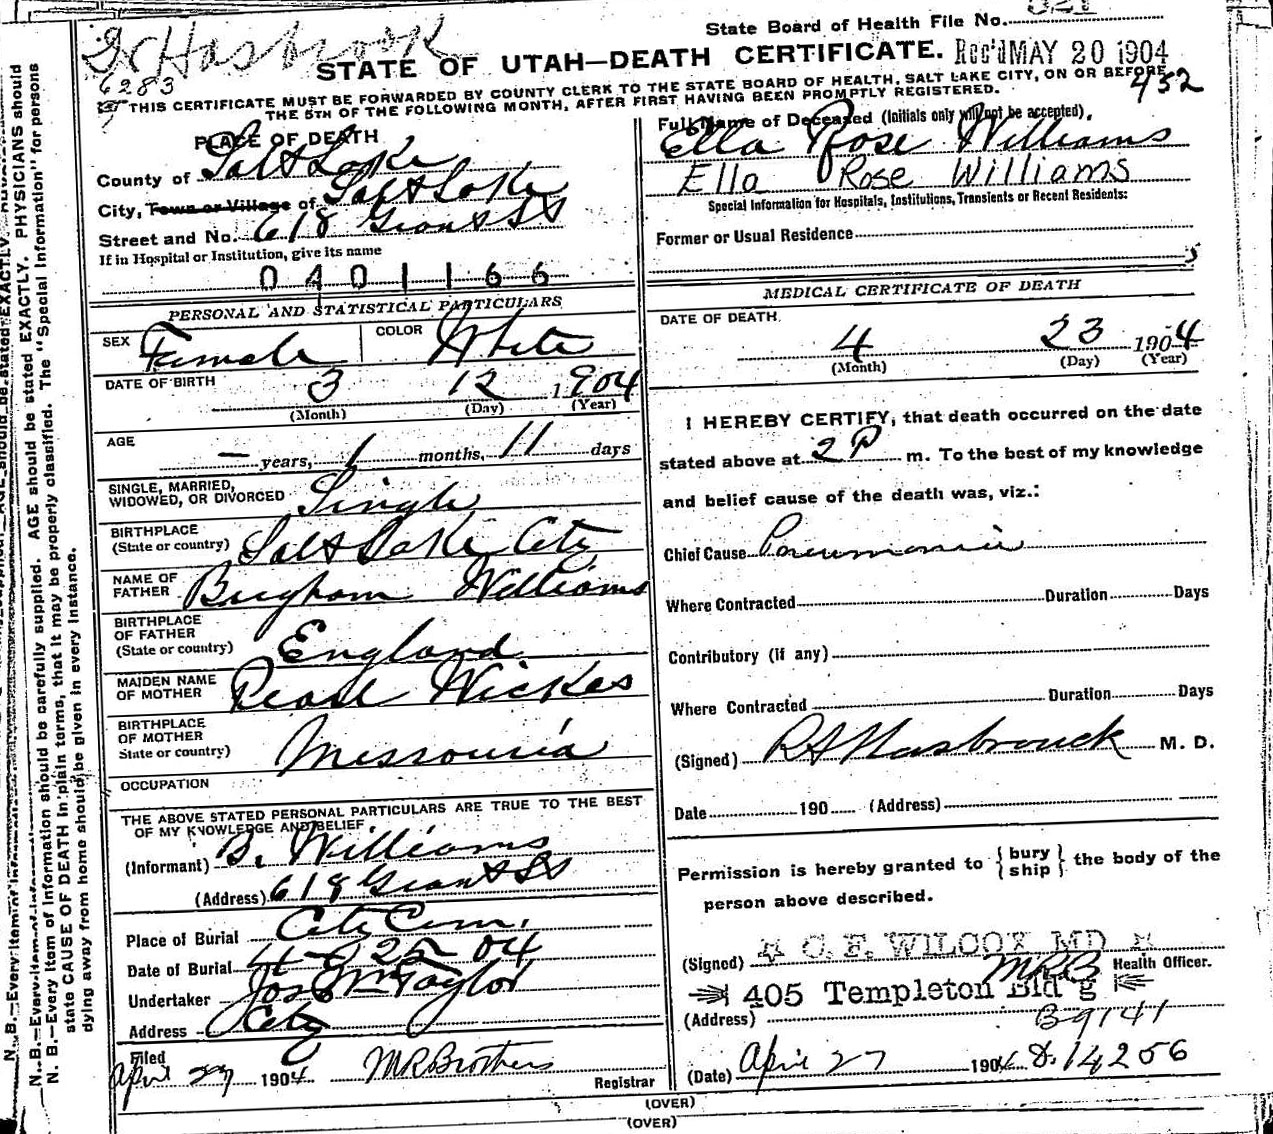 Dr Hasbrook
6283
State Board of Health File No. 321
STATE OF UTAH—DEATH CERTIFICATE. Rec'd MAY 20 1904
452
THIS CERTIFICATE MUST BE FORWARDED BY COUNTY CLERK TO THE STATE BOARD OF HEALTH, SALT LAKE CITY, ON OR BEFORE
THE 5TH OF THE FOLLOWING MONTH, AFTER FIRST HAVING BEEN PROMPTLY REGISTERED.
PLACE OF DEATH
County of Salt Lake
City, Town or Village of Salt Lake
Street and No. 618 Grant St
If in Hospital or Institution, give its name
0401166
Full Name of Deceased (Initials only will not be accepted),
Ella Rose Williams
Ella Rose Williams
Special Information for Hospitals, Institutions, Transients or Recent Residents:
Former or Usual Residence
PERSONAL AND STATISTICAL PARTICULARS
SEX Female COLOR White
DATE OF BIRTH 3 12 1904
(Month) (Day) (Year)
AGE
— years, 1 months, 11 days
SINGLE, MARRIED,
WIDOWED, OR DIVORCED Single
BIRTHPLACE
(State or country) Salt Lake City
NAME OF
FATHER Brigham Williams
BIRTHPLACE
OF FATHER
(State or country) England
MAIDEN NAME
OF MOTHER Pearl Wickes
BIRTHPLACE
OF MOTHER
State or country) Missouria
OCCUPATION
THE ABOVE STATED PERSONAL PARTICULARS ARE TRUE TO THE BEST
OF MY KNOWLEDGE AND BELIEF
(Informant) B. Williams
(Address) 618 Grant St
Place of Burial City Cem.
Date of Burial 4-25-04
Undertaker Jos E Taylor
Address City
Filed
April 27 1904 M R Brothers
Registrar
MEDICAL CERTIFICATE OF DEATH
DATE OF DEATH
4 23 1904
(Month) (Day) (Year)
I HEREBY CERTIFY, that death occurred on the date
stated above at 2 P m. To the best of my knowledge
and belief cause of the death was, viz.:
Chief Cause Pneumonia
Where Contracted Duration Days
Contributory (if any)
Where Contracted Duration Days
(Signed) R A Hasbrouck M. D.
Date 190 (Address)
Permission is hereby granted to {bury
ship} the body of the
person above described.
(Signed) C. F. WILCOX, MD
MRB Health Officer.
405 Templeton Bld'g
(Address)
B9141
(Date) April 27 1904 8.14256
(OVER)
(OVER)
N. B.—Every item of information should be carefully supplied. AGE should be stated EXACTLY. PHYSICIANS should
state CAUSE OF DEATH in plain terms, that it may be properly classified. The "Special Information" for persons
dying away from home should be given in every instance.